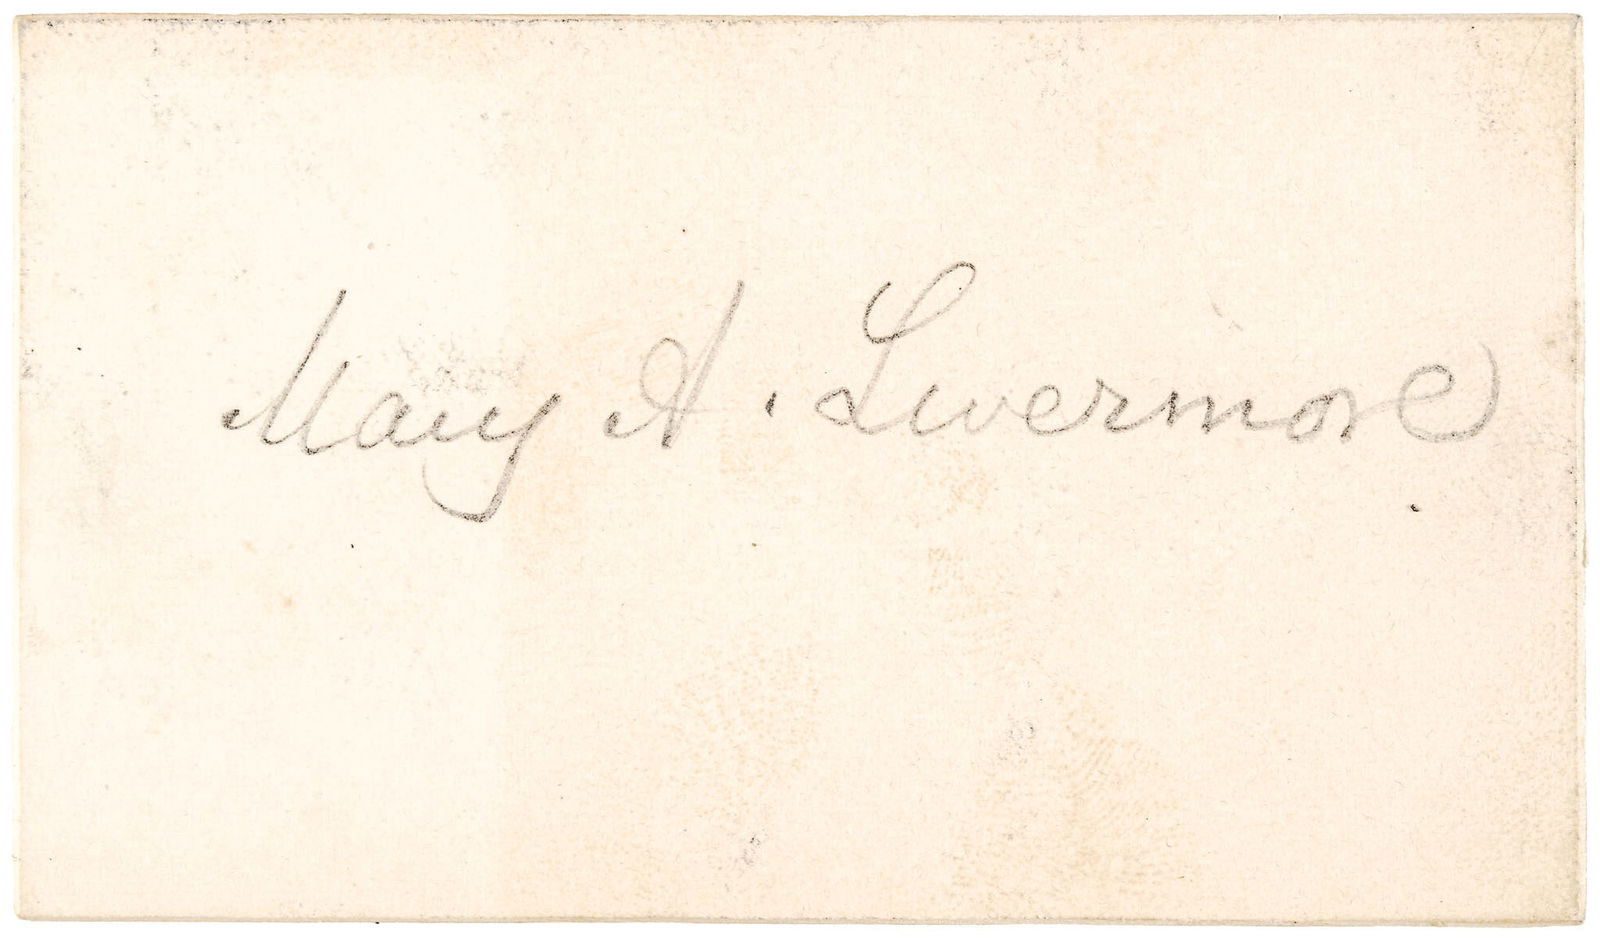 Mary A. Livermore